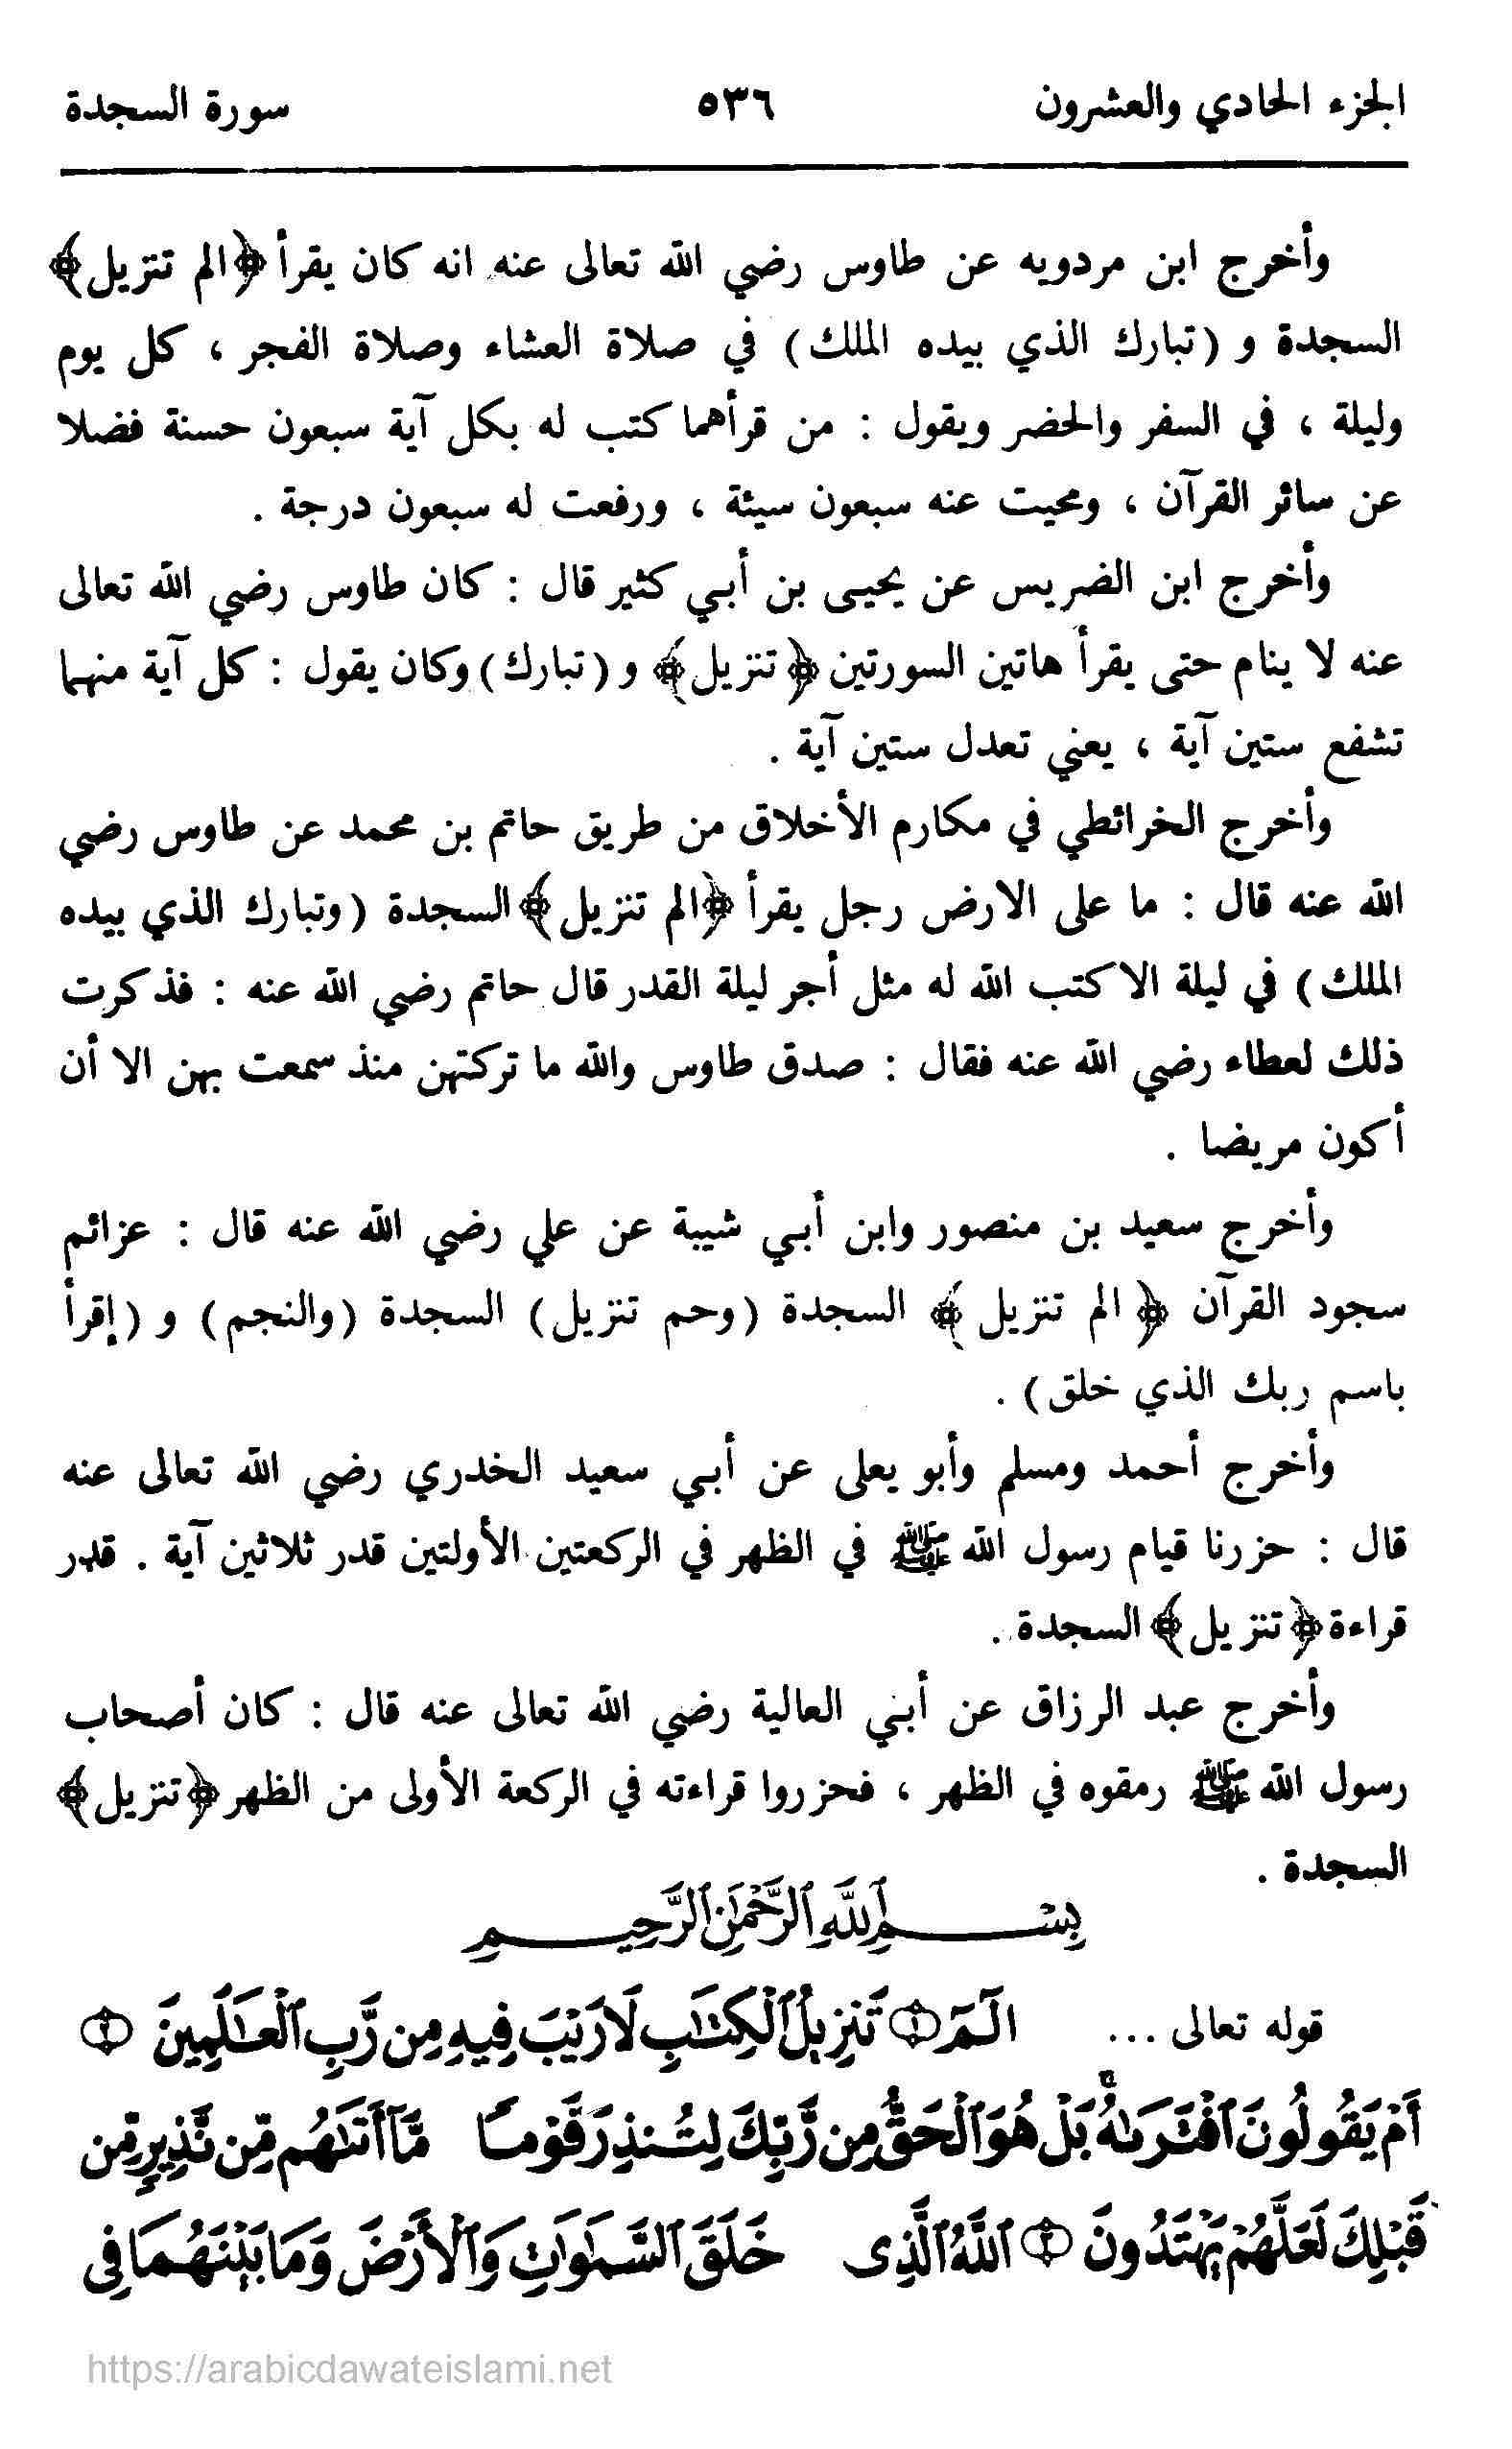 الجزء الحادي والعشرون ٥٣٦ سورة السجدة
وأخرج ابن مردويه عن طاوس رضي الله تعالى عنه انه كان يقرأ ﴿الم تنزيل﴾
السجدة و (تبارك الذي بيده الملك) في صلاة العشاء وصلاة الفجر ، كل يوم
وليلة ، في السفر والحضر ويقول : من قرأهما كتب له بكل آية سبعون حسنة فضلا
عن سائر القرآن ، ومحيت عنه سبعون سيئة ، ورفعت له سبعون درجة .
وأخرج ابن الضريس عن يحيى بن أبي كثير قال : كان طاوس رضي الله تعالى
عنه لا ينام حتى يقرأ هاتين السورتين ﴿تنزيل﴾ و (تبارك) وكان يقول : كل آية منهما
تشفع ستين آية ، يعني تعدل ستين آية .
وأخرج الخرائطي في مكارم الأخلاق من طريق حاتم بن محمد عن طاوس رضي
الله عنه قال : ما على الارض رجل يقرأ ﴿الم تنزيل﴾ السجدة (وتبارك الذي بيده
الملك) في ليلة الا كتب الله له مثل أجر ليلة القدر قال حاتم رضي الله عنه : فذكرت
ذلك لعطاء رضي الله عنه فقال : صدق طاوس والله ما تركتهن منذ سمعت بهن الا أن
أكون مريضا .
وأخرج سعيد بن منصور وابن أبي شيبة عن علي رضي الله عنه قال : عزائم
سجود القرآن ﴿ الم تنزيل ﴾ السجدة (وحم تنزيل) السجدة (والنجم) و (إقرأ
باسم ربك الذي خلق) .
وأخرج أحمد ومسلم وأبو يعلى عن أبي سعيد الخدري رضي الله تعالى عنه
قال : حزرنا قيام رسول الله ﷺ في الظهر في الركعتين الأولتين قدر ثلاثين آية . قدر
قراءة ﴿تنزيل﴾ السجدة .
وأخرج عبد الرزاق عن أبي العالية رضي الله تعالى عنه قال : كان أصحاب
رسول الله ﷺ رمقوه في الظهر ، فحزروا قراءته في الركعة الأولى من الظهر ﴿تنزيل﴾
السجدة .
بِسْمِ ٱللَّهِ ٱلرَّحْمَٰنِ ٱلرَّحِيمِ
قوله تعالى ... الٓمٓ ١ تَنزِيلُ ٱلْكِتَٰبِ لَا رَيْبَ فِيهِ مِن رَّبِّ ٱلْعَٰلَمِينَ ٢
أَمْ يَقُولُونَ ٱفْتَرَىٰهُ ۚ بَلْ هُوَ ٱلْحَقُّ مِن رَّبِّكَ لِتُنذِرَ قَوْمًا مَّآ أَتَىٰهُم مِّن نَّذِيرٍ مِّن
قَبْلِكَ لَعَلَّهُمْ يَهْتَدُونَ ٣ ٱللَّهُ ٱلَّذِى خَلَقَ ٱلسَّمَٰوَٰتِ وَٱلْأَرْضَ وَمَا بَيْنَهُمَا فِى
https://arabicdawateislami.net